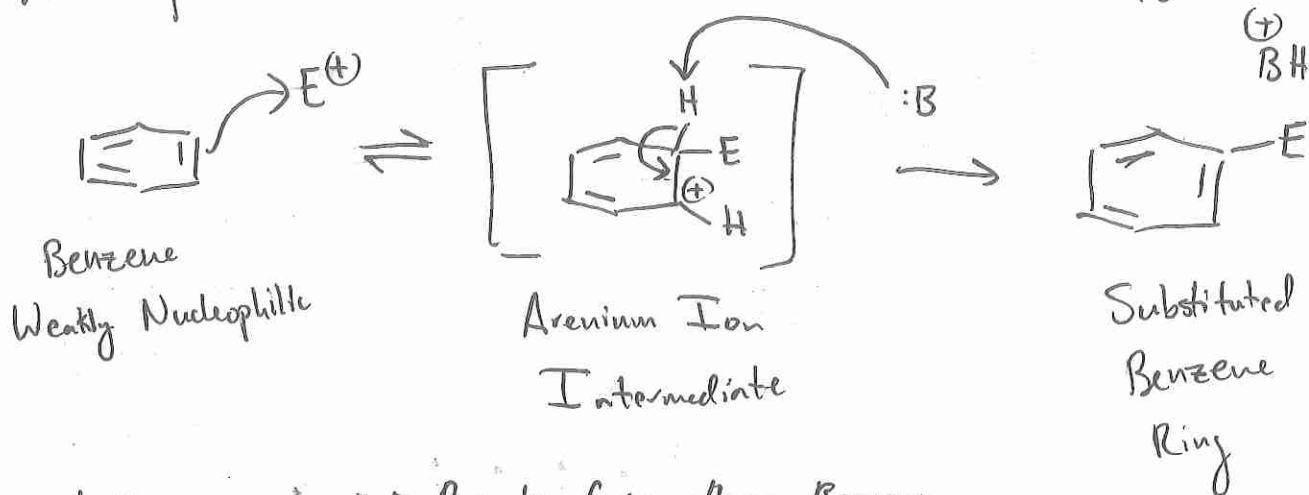 E⊕
H
:B
⊕
BH
E
⊕
H
E
Benzene
Weakly Nucleophilic
Arenium Ion
Intermediate
Substituted
Benzene
Ring